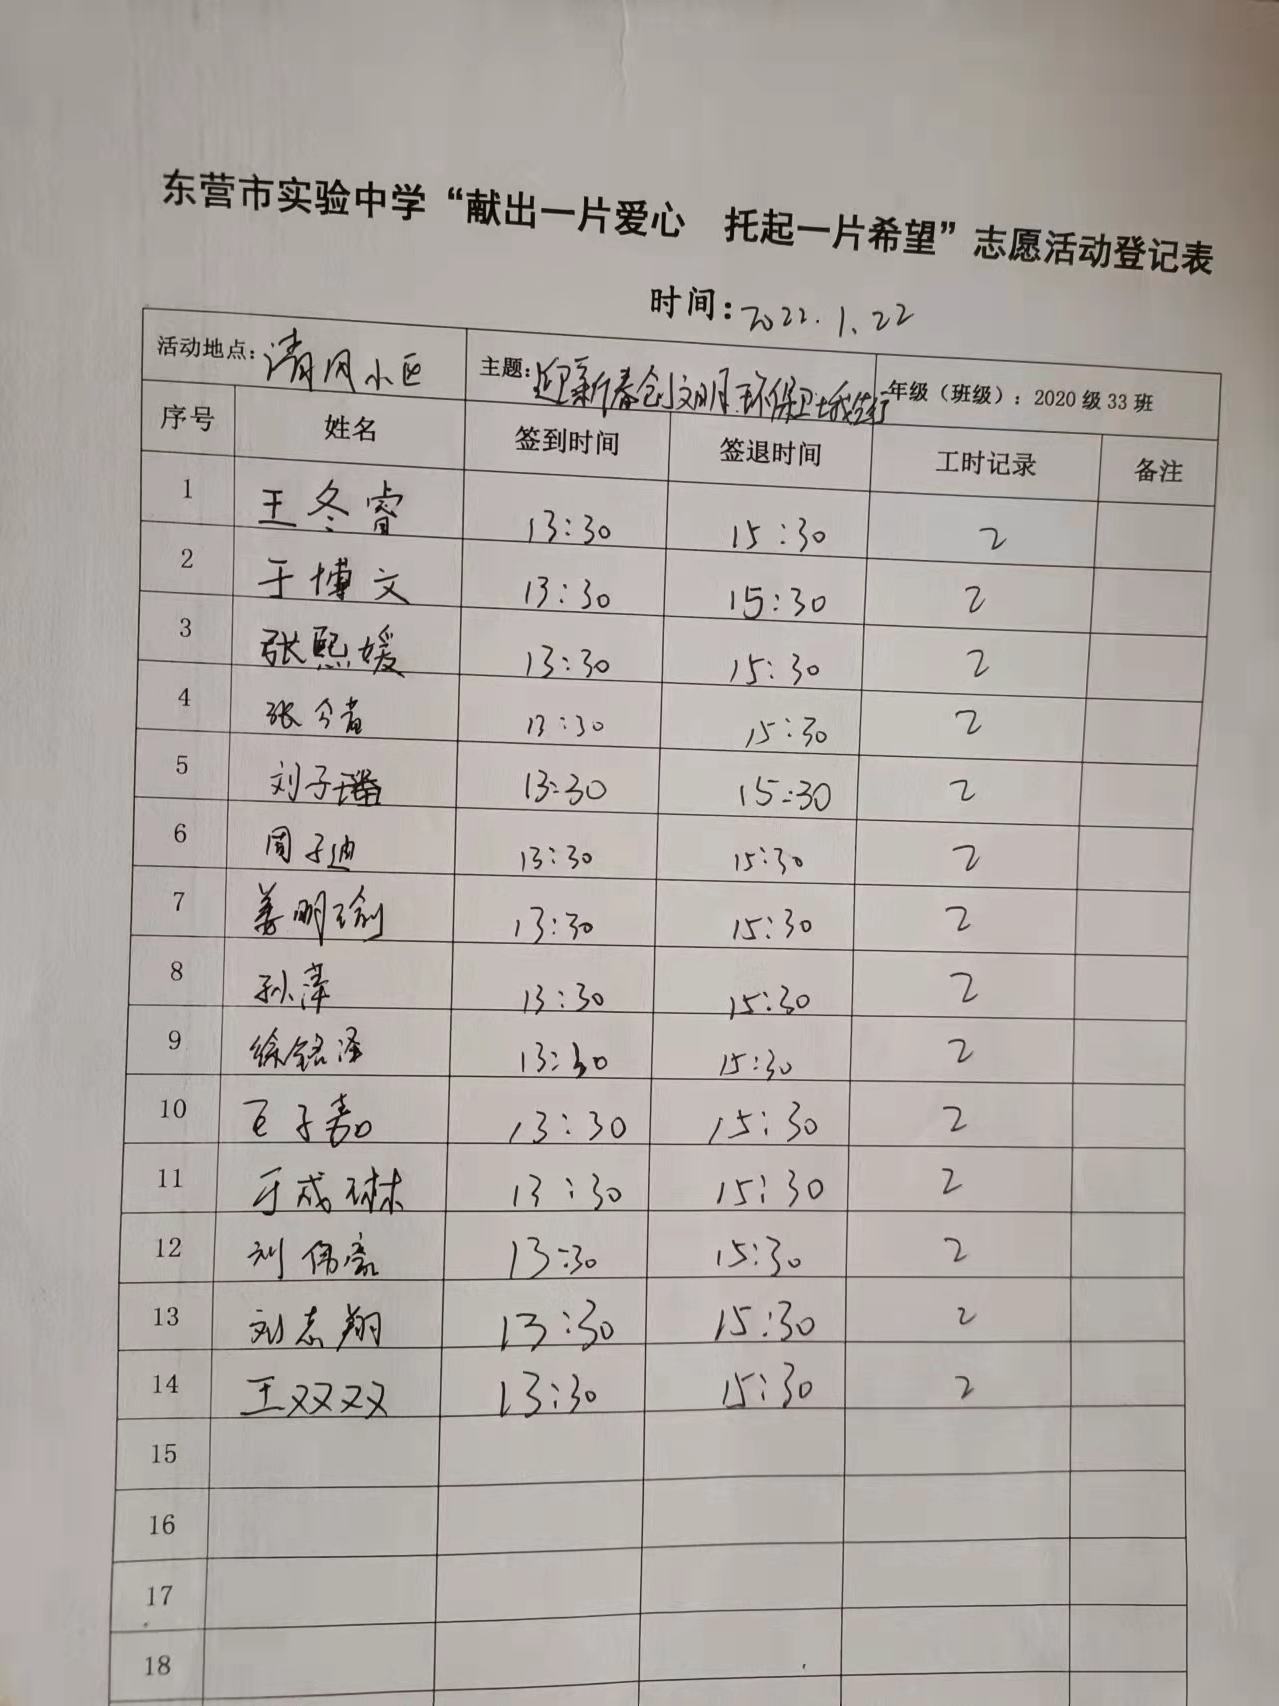 东营市实验中学“献出一片爱心 托起一片希望”志愿活动登记表
时间：2022.1.22
活动地点：清风小区 主题：迎新春创文明 环保卫士我先行 年级（班级）：2020级33班
序号 姓名 签到时间 签退时间 工时记录 备注
1 王冬睿 13:30 15:30 2
2 于博文 13:30 15:30 2
3 张熙媛 13:30 15:30 2
4 张 13:30 15:30 2
5 刘子璠 13:30 15:30 2
6 周子迪 13:30 15:30 2
7 姜明瑜 13:30 15:30 2
8 孙萍 13:30 15:30 2
9 徐铭泽 13:30 15:30 2
10 王子嘉 13:30 15:30 2
11 于成琳 13:30 15:30 2
12 刘伟 13:30 15:30 2
13 刘志翔 13:30 15:30 2
14 王双双 13:30 15:30 2
15
16
17
18